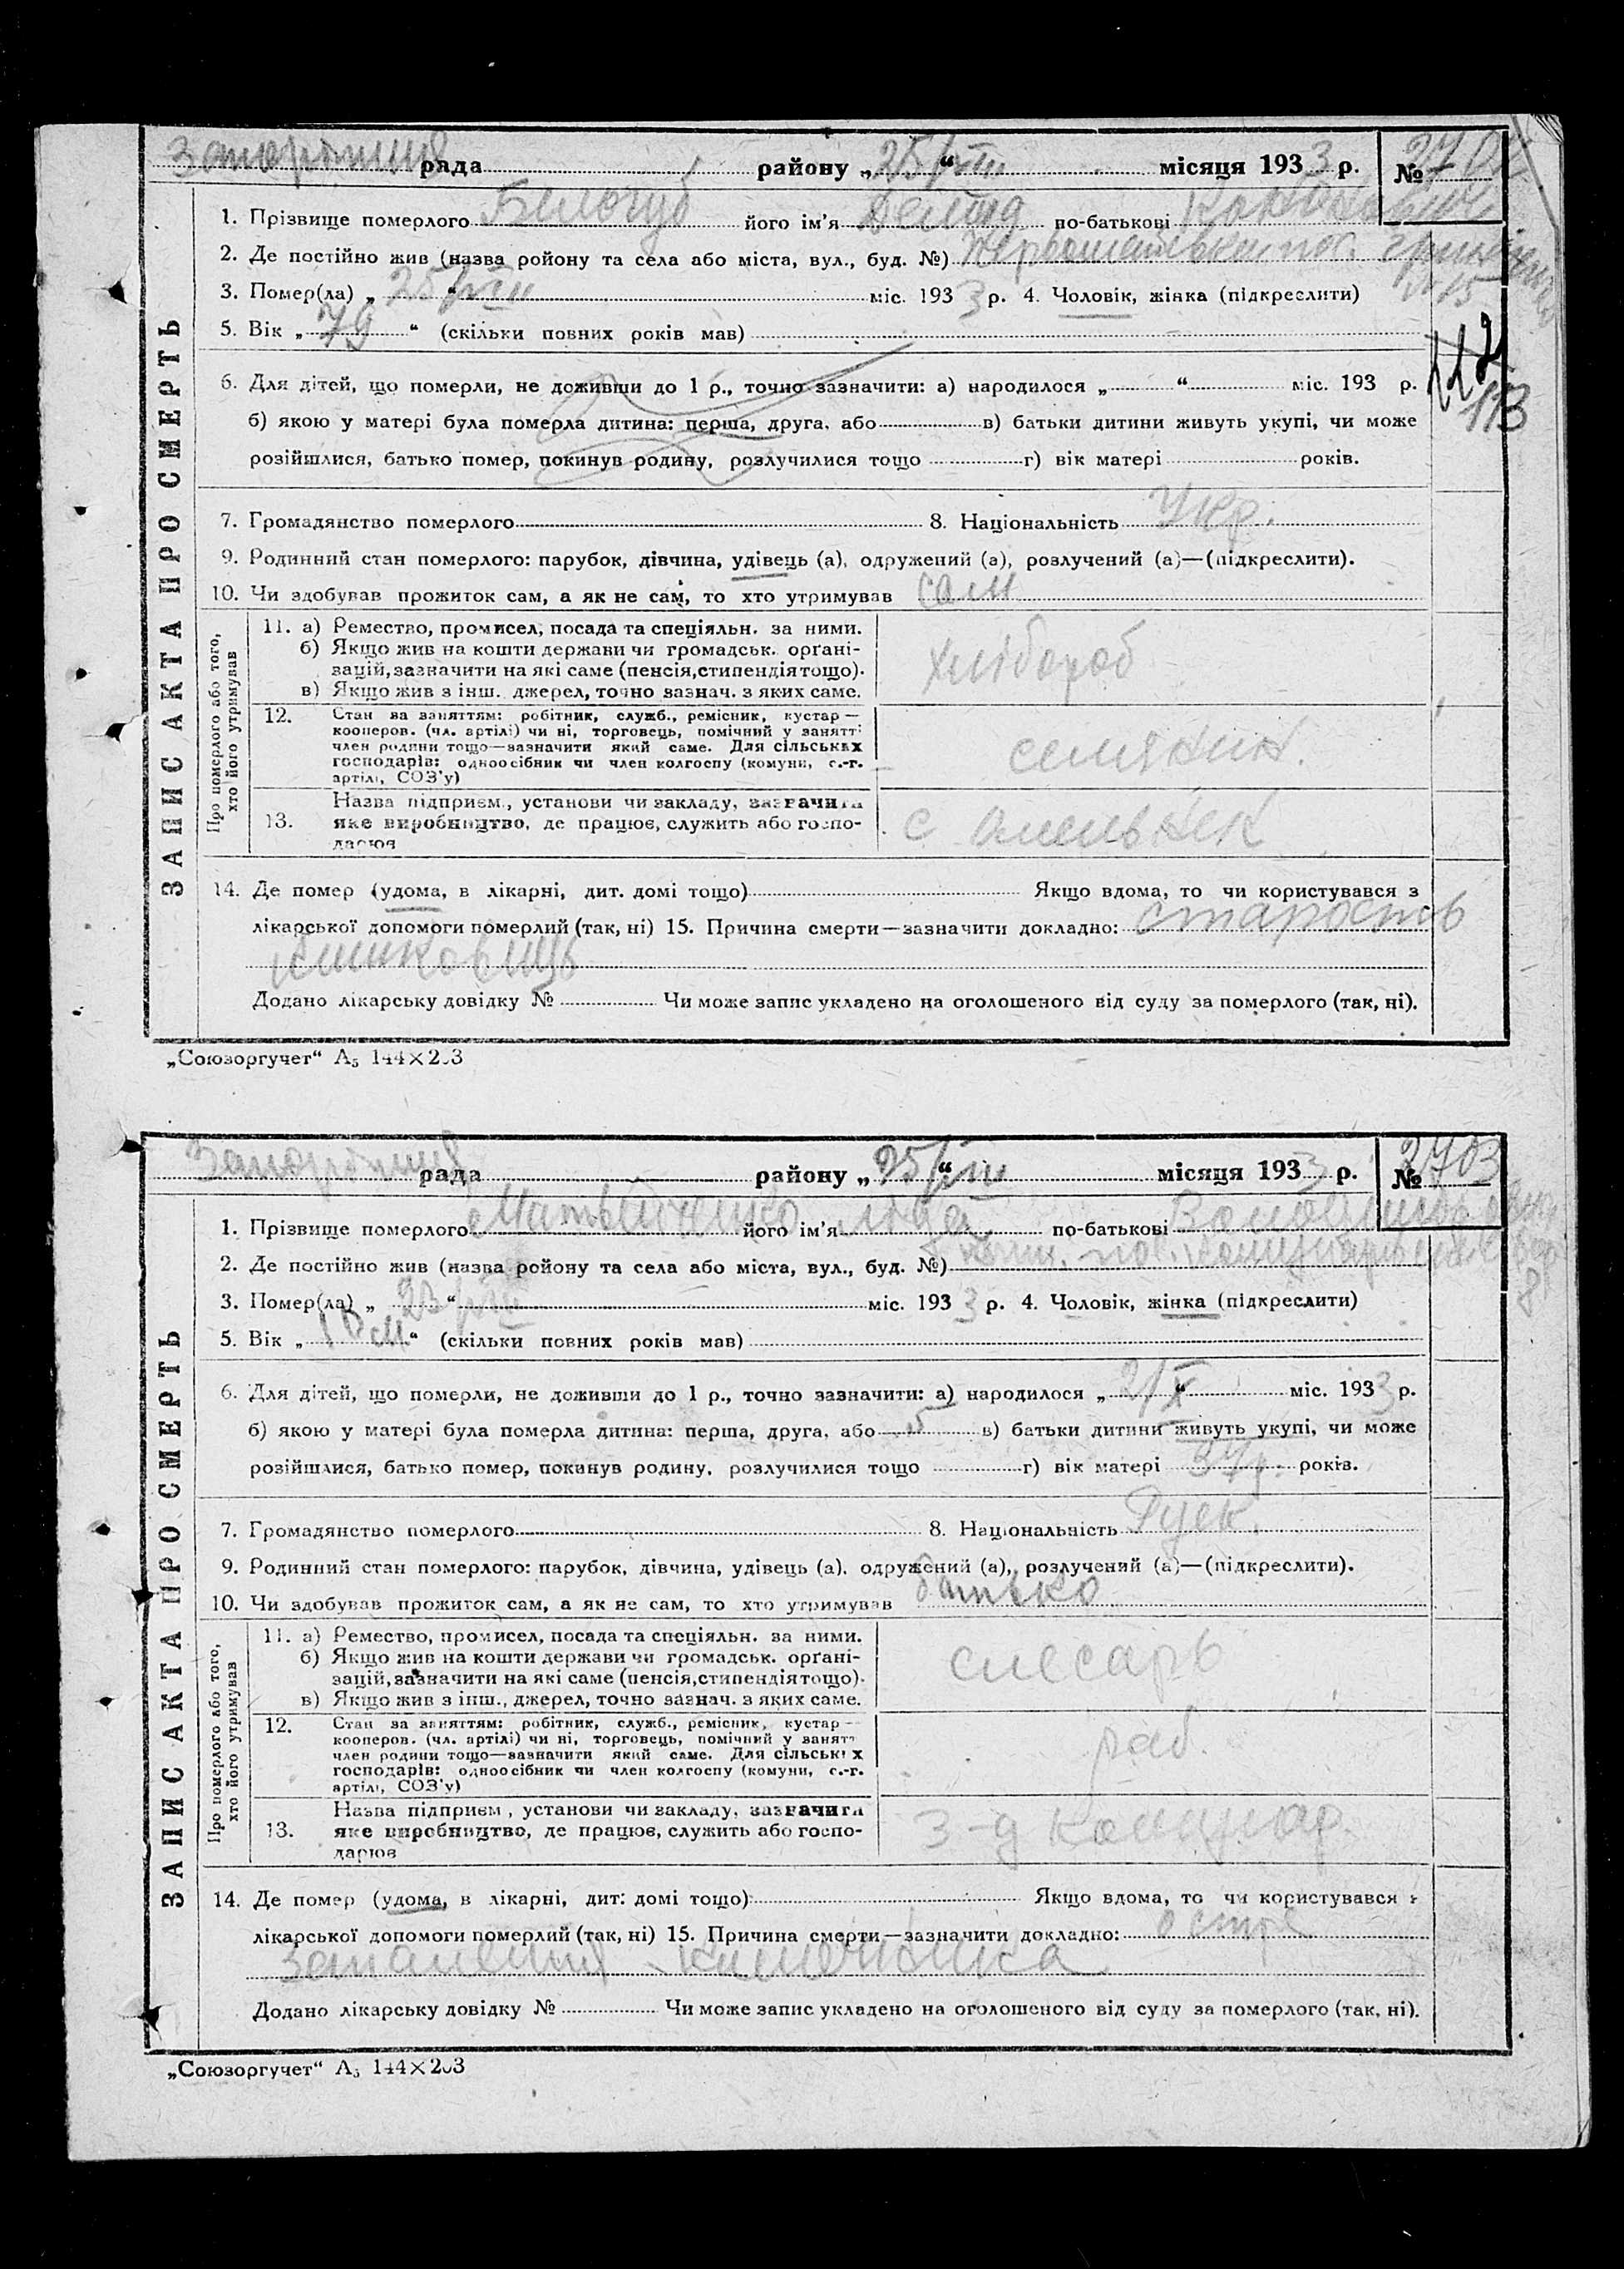 рада района „25/VIII“ місяця 1933 р. №
1. Прізвище померлого Белогуб його ім'я по-батькові
2. Де постійно жив (назва ройону та села або міста, вул., буд. №)
№ 15
3. Помер(ла) „25/VIII“ міс. 1933 р. 4. Чоловік, жінка (підкреслити)
5. Вік „79“ (скільки повних років мав)
112
113
6. Для дітей, що померли, не доживши до 1 р., точно зазначити: а) народилося „ “ міс. 193 р.
б) якою у матері була померла дитина: перша, друга, або в) батьки дитини живуть укупі, чи може
розійшлися, батько помер, покинув родину, розлучилися тощо г) вік матері років.
7. Громадянство померлого 8. Національність Укр.
9. Родинний стан померлого: парубок, дівчина, удівець (а), одружений (а), розлучений (а)—(підкреслити).
10. Чи здобував прожиток сам, а як не сам, то хто утримував сам
ЗАПИС АКТА ПРО СМЕРТЬ
Про померлого або того, хто його утримував
11. а) Ремество, промисел, посада та спеціяльн. за ними.
б) Якщо жив на кошти держави чи громадськ. орґані-
зацій, зазначити на які саме (пенсія, стипендія тощо).
в) Якщо жив з інш. джерел, точно зазнач. з яких саме.
хлібороб
12. Стан за заняттям: робітник, служб., ремісник, кустар —
кооперов. (чл. артілі) чи ні, торговець, помічний у занятті
член родини тощо—зазначити який саме. Для сільських
господарів: одноосібник чи член колгоспу (комуни, с.-г.
артілі, СОЗ'у)
селянин.
13. Назва підприєм., установи чи закладу, зазначити
яке виробництво, де працює, служить або госпо-
дарює
с
14. Де помер (удома, в лікарні, дит. домі тощо) Якщо вдома, то чи користувався з
лікарської допомоги померлий (так, ні) 15. Причина смерти—зазначити докладно: старость
Додано лікарську довідку № Чи може запис укладено на оголошеного від суду за померлого (так, ні).
„Союзоргучет“ А₅ 144×203
рада району „25/VIII“ місяця 1933 р. № 2703
1. Прізвище померлого його ім'я Лида по-батькові
2. Де постійно жив (назва ройону та села або міста, вул., буд. №)
8
3. Помер(ла) „23/VIII“ міс. 1933 р. 4. Чоловік, жінка (підкреслити)
5. Вік „10 м.“ (скільки повних років мав)
6. Для дітей, що померли, не доживши до 1 р., точно зазначити: а) народилося „21/X“ міс. 1933 р.
б) якою у матері була померла дитина: перша, друга, або 5 в) батьки дитини живуть укупі, чи може
розійшлися, батько помер, покинув родину, розлучилися тощо г) вік матері 37 р. років.
7. Громадянство померлого 8. Національність Руск.
9. Родинний стан померлого: парубок, дівчина, удівець (а), одружений (а), розлучений (а)—(підкреслити).
10. Чи здобував прожиток сам, а як не сам, то хто утримував батько
ЗАПИС АКТА ПРО СМЕРТЬ
Про померлого або того, хто його утримував
11. а) Ремество, промисел, посада та спеціяльн. за ними.
б) Якщо жив на кошти держави чи громадськ. орґані-
зацій, зазначити на які саме (пенсія, стипендія тощо).
в) Якщо жив з інш., джерел, точно зазнач. з яких саме.
слесарь
12. Стан за заняттям: робітник, служб., ремісник, кустар —
кооперов. (чл. артілі) чи ні, торговець, помічний у занятт
член родини тощо—зазначити який саме. Для сільських
господарів: одноосібник чи член колгоспу (комуни, с.-г.
артілі, СОЗ'у)
раб.
13. Назва підприєм., установи чи закладу, зазначити
яке виробництво, де працює, служить або госпо-
дарює
з-д Комунар.
14. Де помер (удома, в лікарні, дит. домі тощо) Якщо вдома, то чи користувався з
лікарської допомоги померлий (так, ні) 15. Причина смерти—зазначити докладно: остре
Запалення кишечника
Додано лікарську довідку № Чи може запис укладено на оголошеного від суду за померлого (так, ні).
„Союзоргучет“ А₅ 144×203